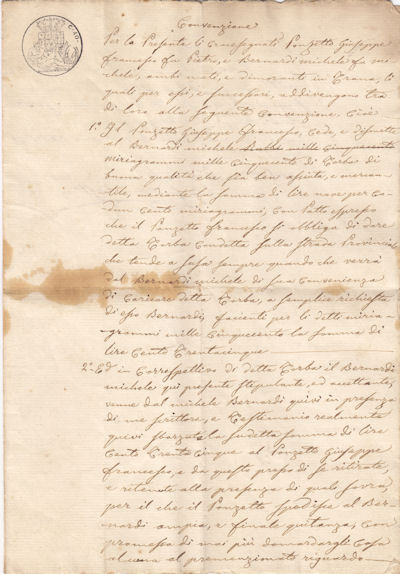 Convenzione
Per la Presente li transegnati Ponzetto Giuseppe
francesco fu Pietro, e Bernardi michele fu mi
chele, ambi nati, e dimoranti in Trana, li
quali per essi, e successori, addivengono tra
di loro alla seguente Convenzione, Cioè
1.° Il Ponzetto Giuseppe francesco, Cede, e dismette
al Bernardi michele mille cinquecento
miriagrammi mille cinquecento di Torba di
buona qualità che sia ben asciuta, e mercan
tile, mediante la somma di lire nove per Ca
dun Cento miriagrammi, Con Patto espresso
che il Ponzetto francesco si obbliga di dare
detta Torba Condotta sulla strada Provinciale
che tende a Susa sempre quando che verrà
dal Bernardi michele di sua Convenienza
di Caricare detta Torba, a semplice richiesta
di esso Bernardi, facienti per li detti miria
grammi mille Cinquecento la somma di
lire Cento Trentacinque
2.° Ed in Correspettivo di detta Torba il Bernardi
michele qui presente stipulante, ed accettante,
venne dal michele Bernardi quivi in presenza
di me scrittore, e Testimonio realmente
quivi sborzata la sudetta somma di lire
Cento Trenta Cinque al Ponzetto Giuseppe
francesco, e da questo preso di se ritirate,
e ritenute alla presenza di quali sovra,
per il che il Ponzetto spedisse al Ber
nardi ampia, e finale quitanza, Con
promessa di mai più domandargli Cosa
alcuna al premenzionato riguardo